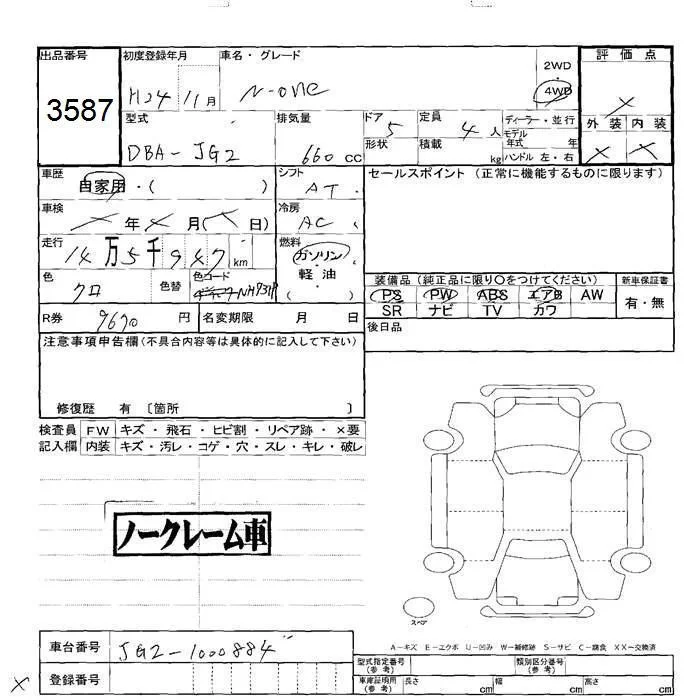 出品番号 初度登録年月 車名・グレード 2WD 評価点
3587 H24 11月 N-one 4WD ×
型式 排気量 ドア 定員 ディーラー・並行 外装 内装
DBA-JG2 660cc 5 4人 モデル年式 年 × ×
形状 積載 kg ハンドル 左・右
車歴 シフト セールスポイント (正常に機能するものに限ります)
自家用・( ) AT
車検 冷房
×年×月(×日) AC
走行 燃料
14万5千947km ガソリン
軽油
色 色替 色コード 装備品(純正品に限り○をつけてください) 新車保証書
クロ ( ) PS PW ABS エアB AW 有・無
SR ナビ TV カワ
R券 9670円 名変期限 月 日 後日品
注意事項申告欄(不具合内容等は具体的に記入して下さい)
修復歴 有 〔箇所 〕
検査員 FW キズ・飛石・ヒビ割・リペア跡・×要
記入欄 内装 キズ・汚レ・コゲ・穴・スレ・キレ・破レ
ノークレーム車
スペア
A-キズ E-エクボ U-凹み W-補修跡 S-サビ C-腐食 XX-交換済
車台番号 JG2-1000884
登録番号
×
型式指定番号(参考) 類別区分番号(参考)
車庫証明用(参考) 長さ cm 幅 cm 高さ cm